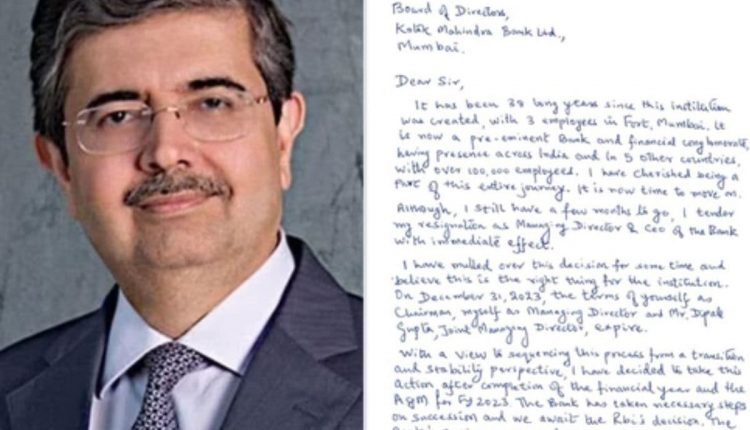 Board of Directors,
Kotak Mahindra Bank Ltd.,
Mumbai.
Dear Sir,
It has been 38 long years since this institution
was created, with 3 employees in Fort, Mumbai. It
is now a pre-eminent Bank and financial conglomerate,
having presence across India and in 5 other countries,
with over 100,000 employees. I have cherished being a
part of this entire journey. It is now time to move on.
Although, I still have a few months to go, I tender
my resignation as Managing Director & CEO of the Bank
with immediate effect.
I have mulled over this decision for some time and
believe this is the right thing for the institution.
On December 31, 2023, the terms of yourself as
Chairman, myself as Managing Director and Mr. Dipak
Gupta, Joint Managing Director, expire.
With a view to sequencing this process form a transition
and stability perspective, I have decided to take this
action after completion of the financial year and the
AGM for FY 2023. The Bank has taken necessary steps
on succession and we await the RBI's decision. The